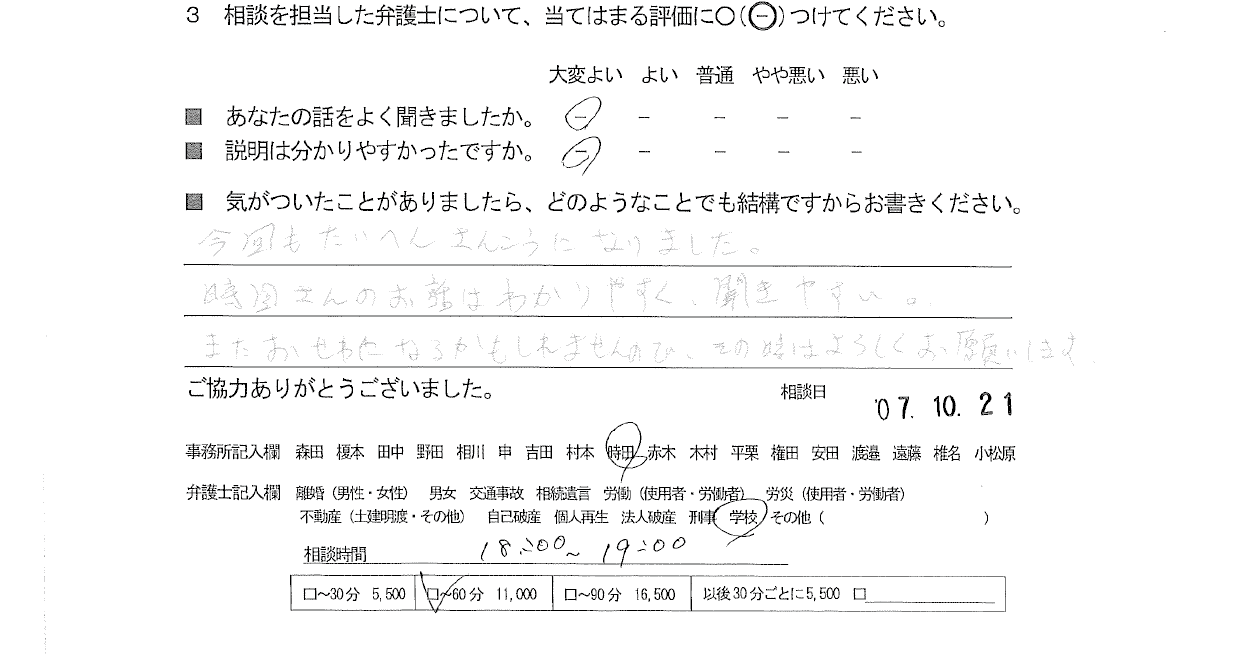 3 相談を担当した弁護士について、当てはまる評価に○(㊀)つけてください。
大変よい よい 普通 やや悪い 悪い
■ あなたの話をよく聞きましたか。 － － － － －
■ 説明は分かりやすかったですか。 － － － － －
■ 気がついたことがありましたら、どのようなことでも結構ですからお書きください。
今回もたいへんさんこうになりました。
時田さんのお話はわかりやすく、聞きやすい。
またおせわになるかもしれませんので、その時はよろしくお願いします
ご協力ありがとうございました。 相談日 '07.10.21
事務所記入欄 森田 榎本 田中 野田 相川 申 吉田 村本 時田 赤木 木村 平栗 権田 安田 渡邉 遠藤 椎名 小松原
弁護士記入欄 離婚（男性・女性） 男女 交通事故 相続遺言 労働（使用者・労働者） 労災（使用者・労働者）
不動産（土建明渡・その他） 自己破産 個人再生 法人破産 刑事 学校 その他（ ）
相談時間 18:00～19:00
□～30分 5,500 □～60分 11,000 □～90分 16,500 以後30分ごとに5,500 □